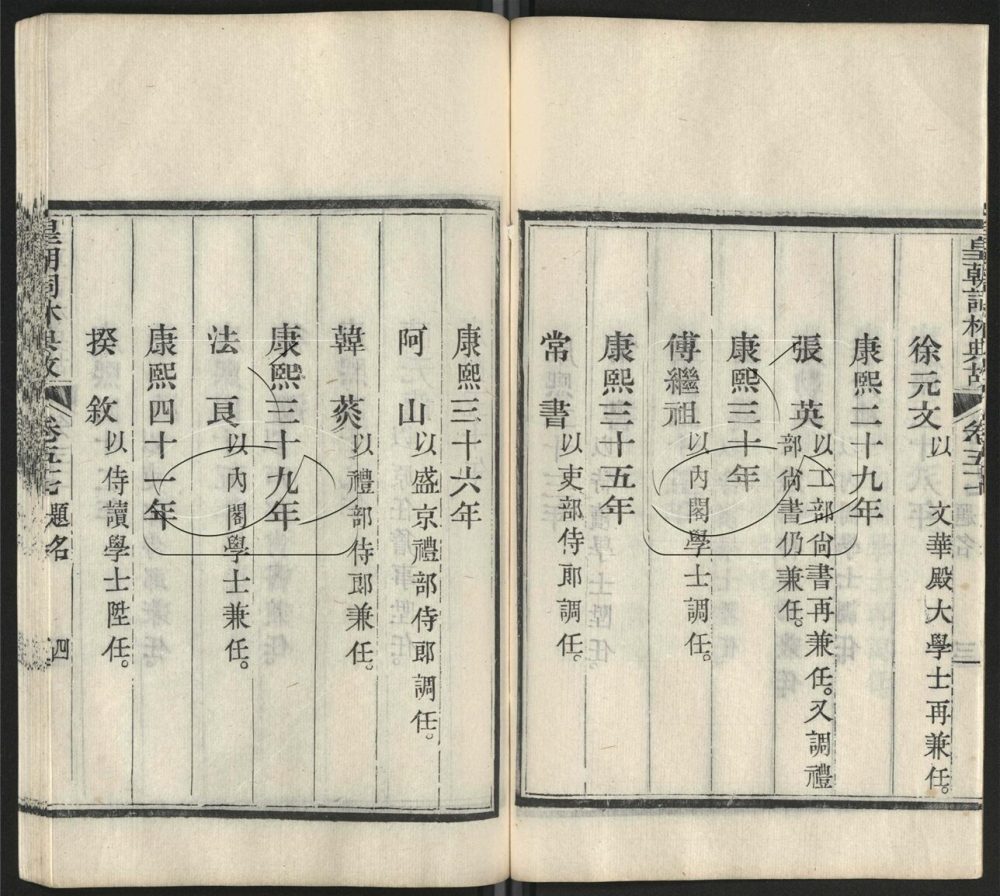 皇朝詞林典故 卷五十七
徐元文 以文華殿大學士再兼任。
康熙二十九年
張英 以工部尙書再兼任。又調禮部尙書仍兼任。
康熙三十年
傅繼祖 以內閣學士調任。
康熙三十五年
常書 以吏部侍郎調任。
三
康熙三十六年
阿山 以盛京禮部侍郎調任。
韓菼 以禮部侍郎兼任。
康熙三十九年
法良 以內閣學士兼任。
康熙四十一年
揆敘 以侍讀學士陞任。
皇朝詞林典故 卷五十七 題名 四